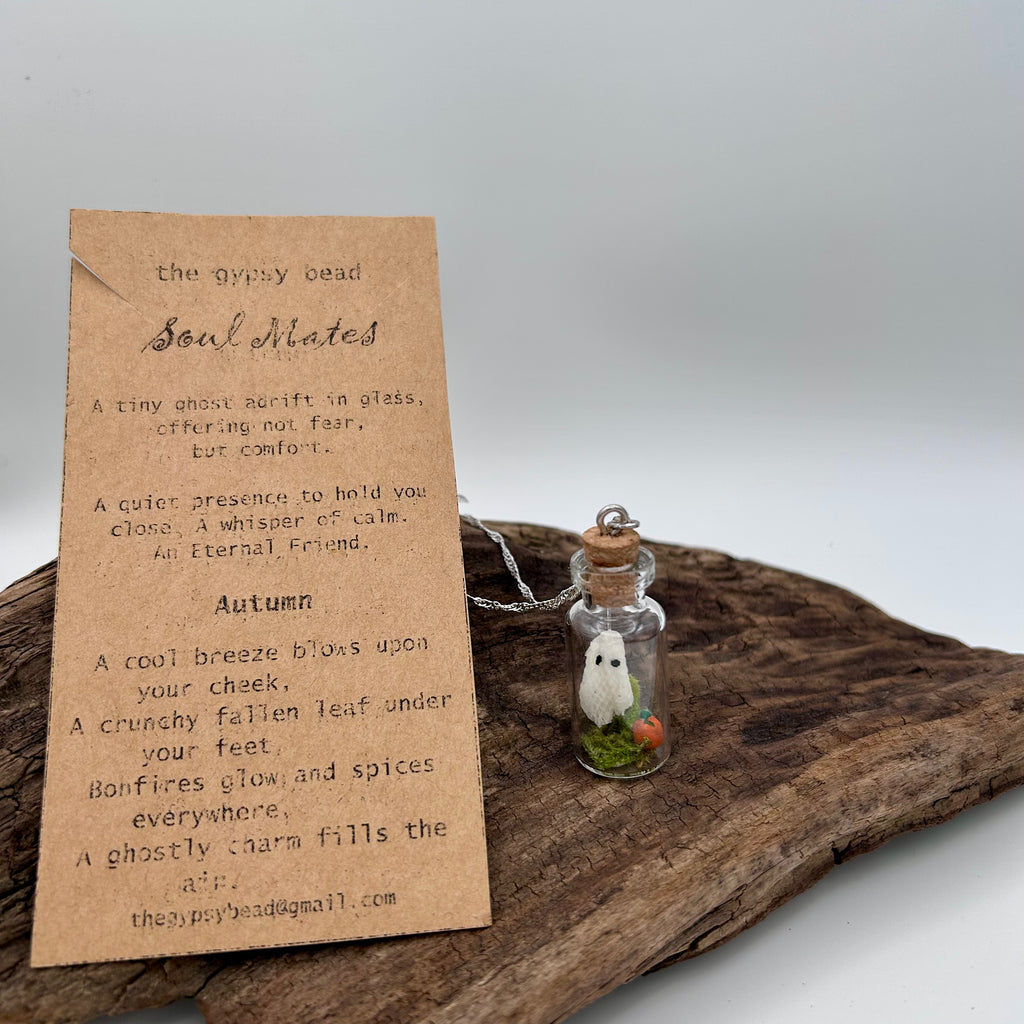 the gypsy bead
Soul Mates
A tiny ghost adrift in glass,
offering not fear,
but comfort.
A quiet presence to hold you
close. A whisper of calm.
An Eternal Friend.
Autumn
A cool breeze blows upon
your cheek,
A crunchy fallen leaf under
your feet,
Bonfires glow and spices
everywhere,
A ghostly charm fills the
air.
thegypsybead@gmail.com